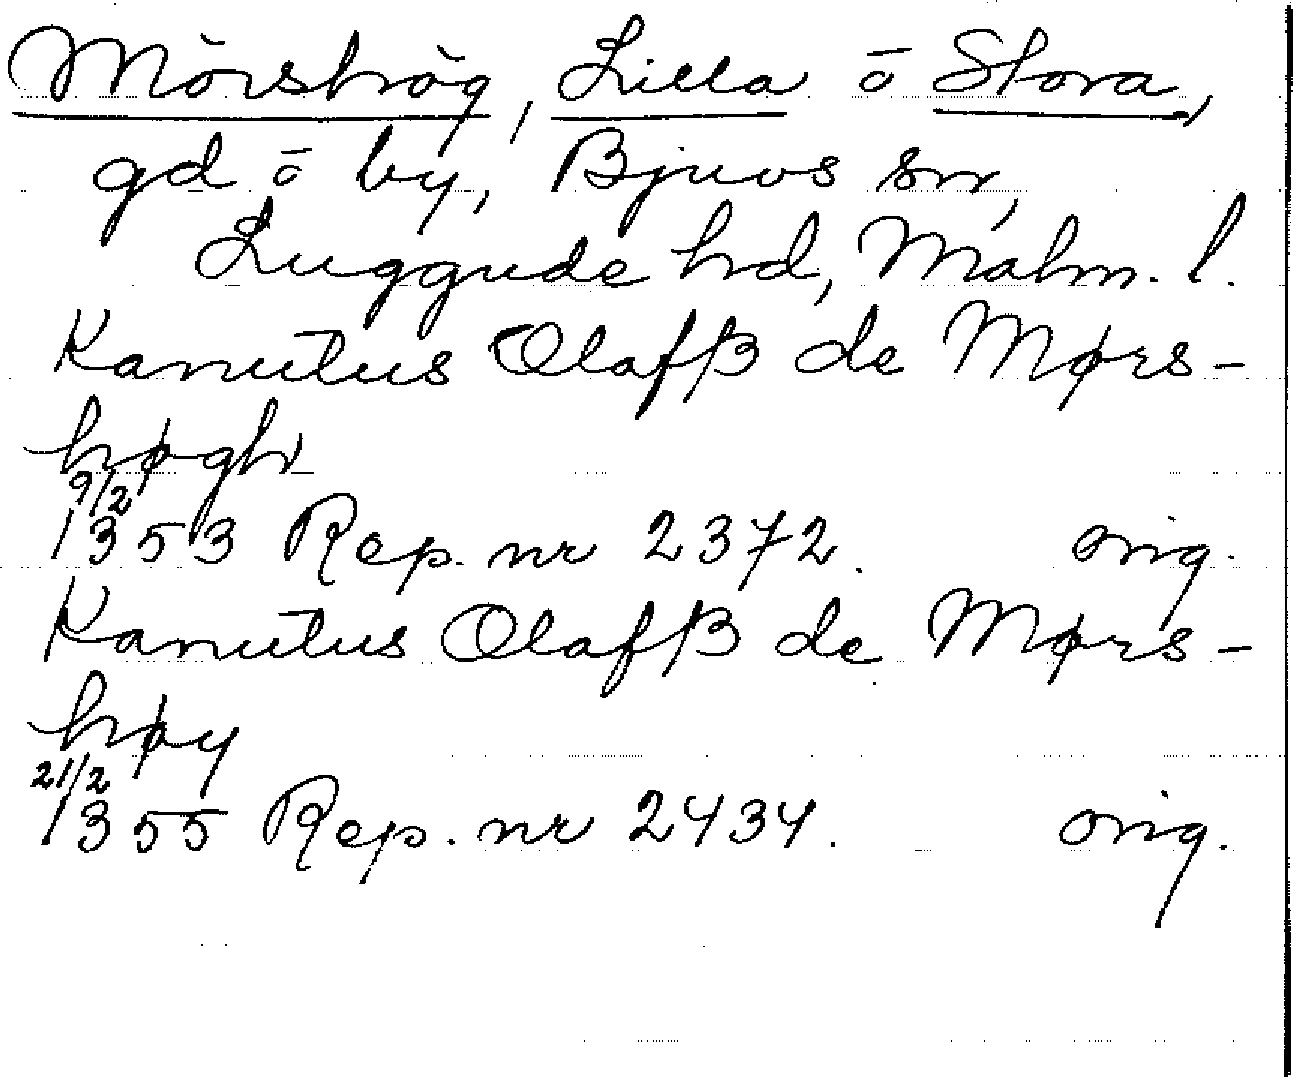 Mörshög, Lilla o Stora,
gd o by, Bjuvs sn,
Luggude hd, Malm. l.
Kanutus Olafß de Mørs-
høgh
9/2
1353 Rep. nr 2372. orig.
Kanutus Olafß de Mørs-
høy
21/2
1355 Rep. nr 2434. orig.